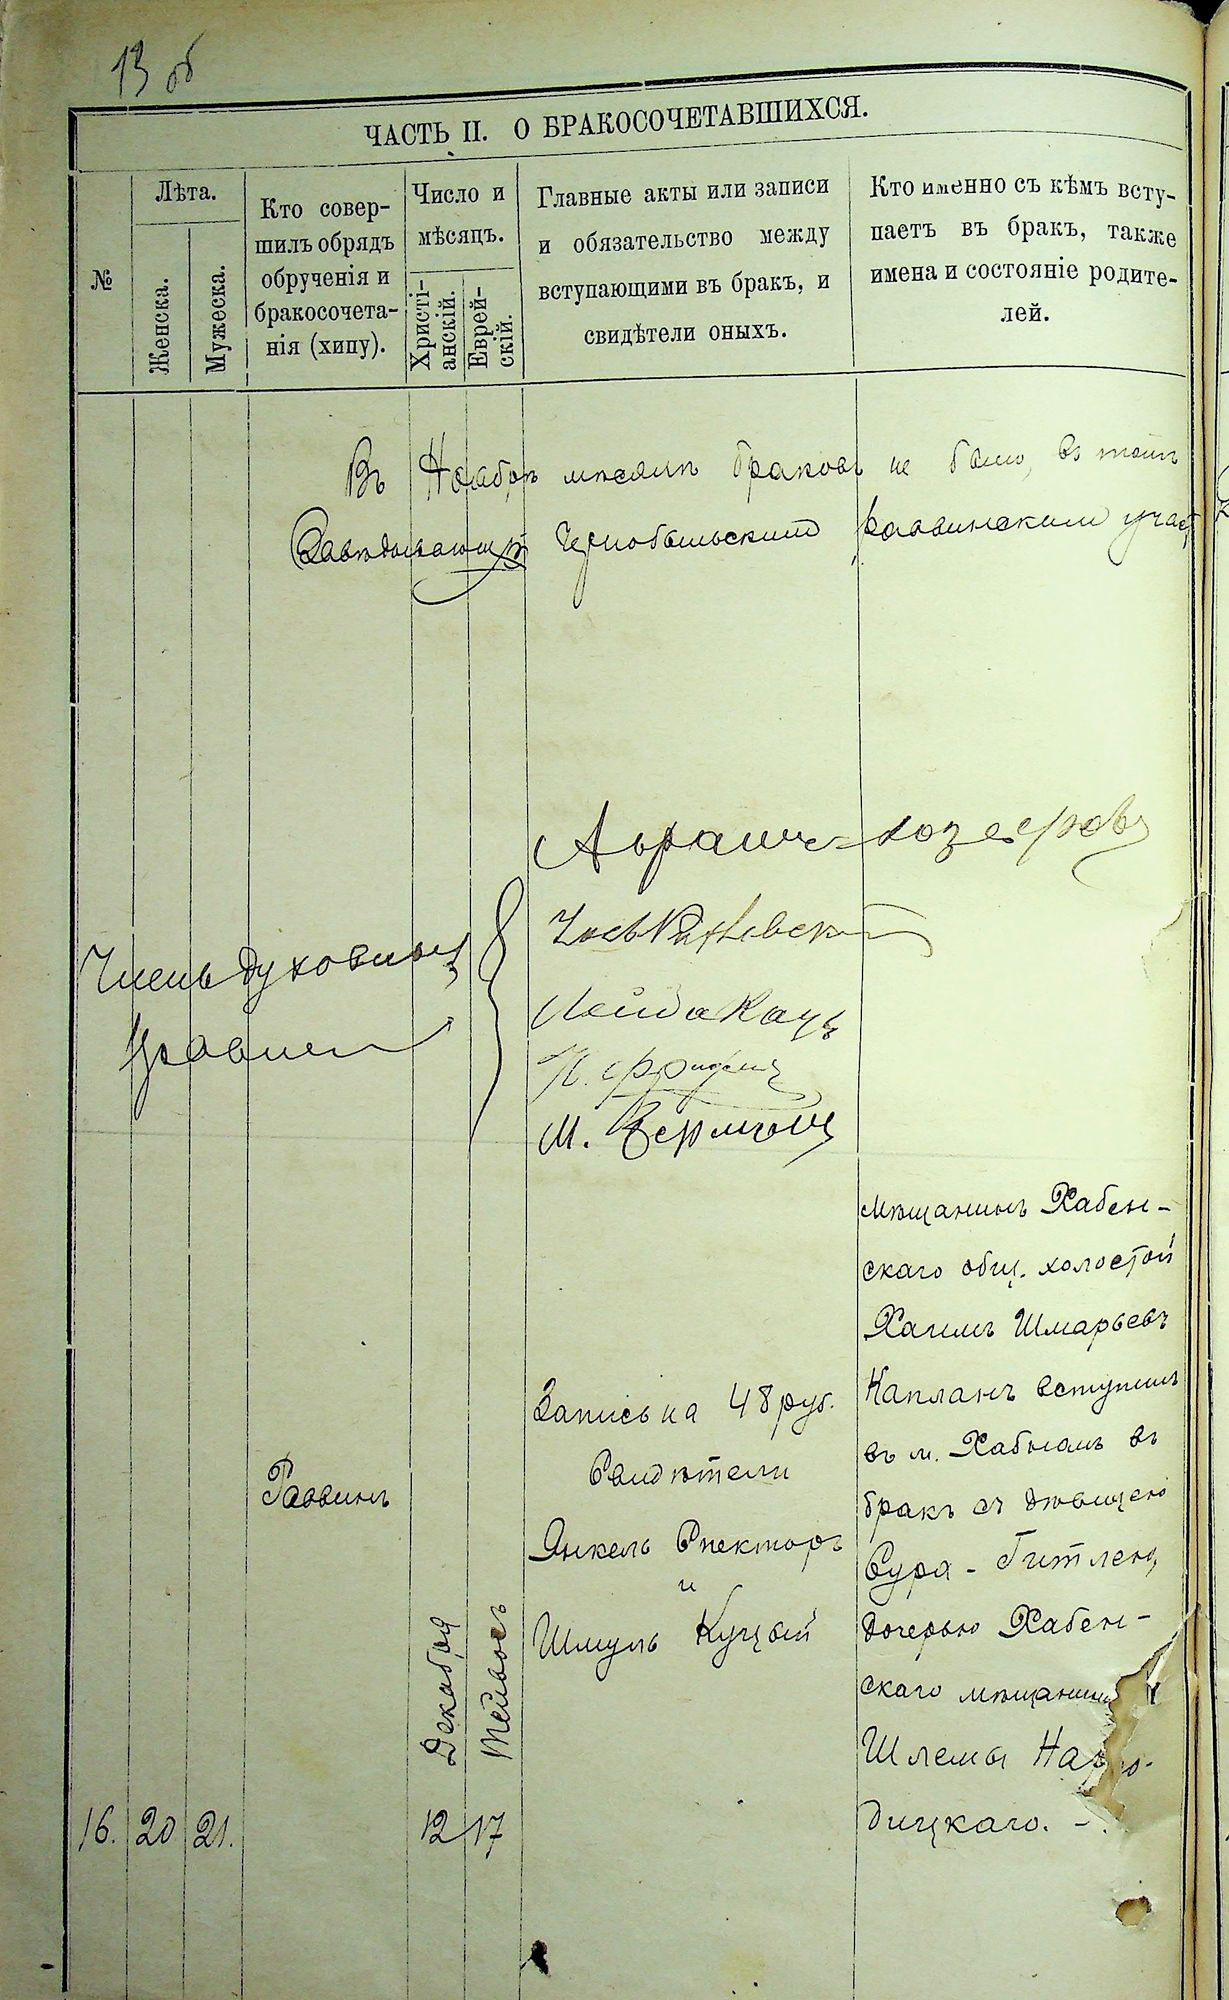 13 об
ЧАСТЬ II. О БРАКОСОЧЕТАВШИХСЯ.
№
Лѣта.
Женска.
Мужеска.
Кто совер-
шилъ обрядъ
обрученія и
бракосочета-
нія (хипу).
Число и
мѣсяцъ.
Христі-
анскій.
Еврей-
скій.
Главные акты или записи
и обязательство между
вступающими въ бракъ, и
свидѣтели оныхъ.
Кто именно съ кѣмъ всту-
паетъ въ бракъ, также
имена и состояніе родите-
лей.
Въ Ноябрѣ мѣсяцѣ браковъ не было, въ томъ
Завѣдывающій Чернобыльскимъ раввинскимъ участ
Члены духовнаго
правлен
Лейба Кацъ
М.
16.
20
21.
Раввинъ
Декабря
12
Тейвосъ
17
Запись на 48 руб.
Свидѣтели
Янкель Спекторъ
и
Шмуль Куцый
мѣщанинъ Хабен-
скаго общ. холостой
Хаимъ Шмарьевъ
Капланъ вступилъ
въ м. Хабномъ въ
бракъ съ дѣвицею
Сура-Гитлею,
дочерью Хабен-
скаго мѣщанина
Шлемы Наро-
дицкаго. -